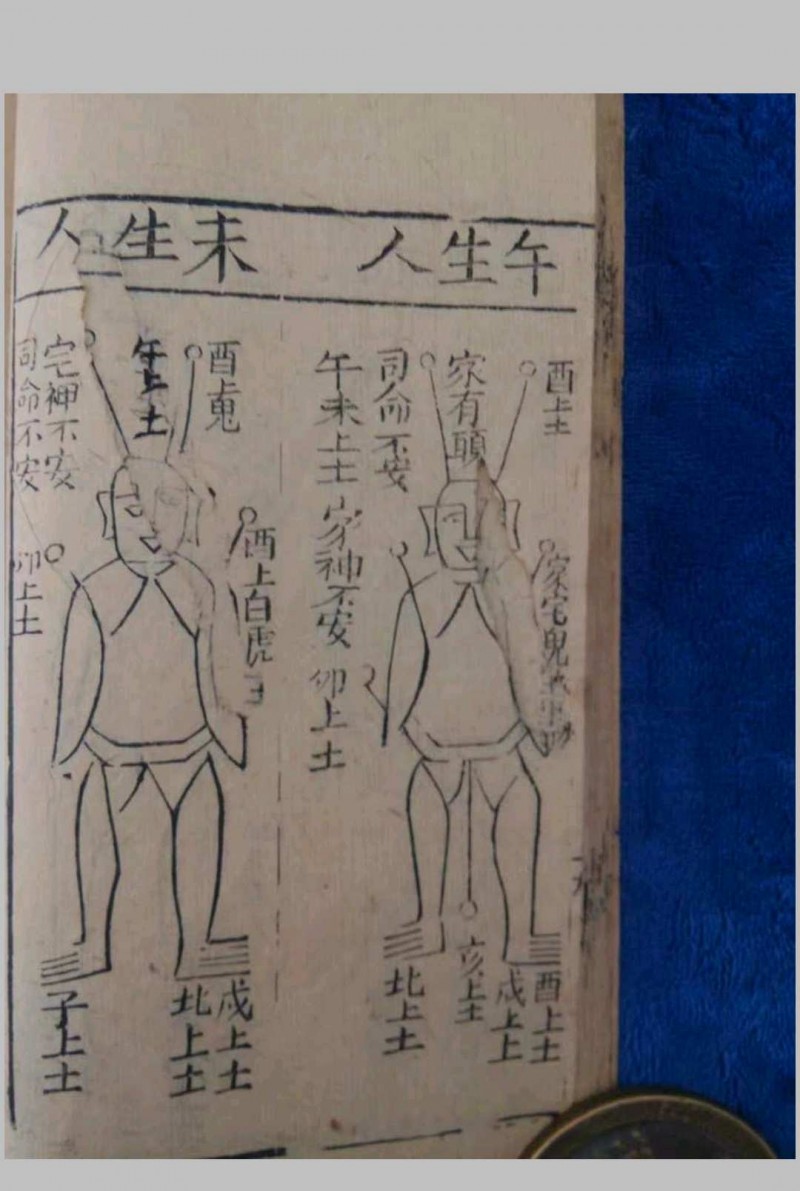 午生人
酉上土
家有頭
司命不安
午未上土
家神不安
卯上土
酉上土
戌上上
亥上土
北上土
未生人
酉上鬼
午上土
宅神不安
司命不安
酉上白虎
卯上土
戌上土
北上土
子上土